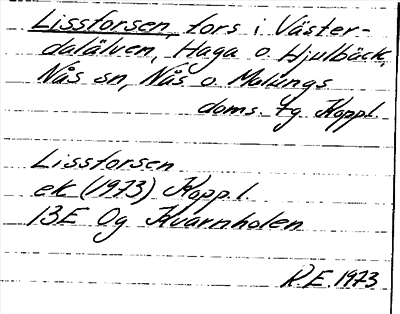 Lissforsen, fors i Väster-
dalälven, Haga o. Hjulbäck,
Nås sn, Nås o. Malungs
doms. tg Koppl.
Lissforsen
ek (1973) Kopp.l.
13E 0g Kvarnholen
R.E. 1973